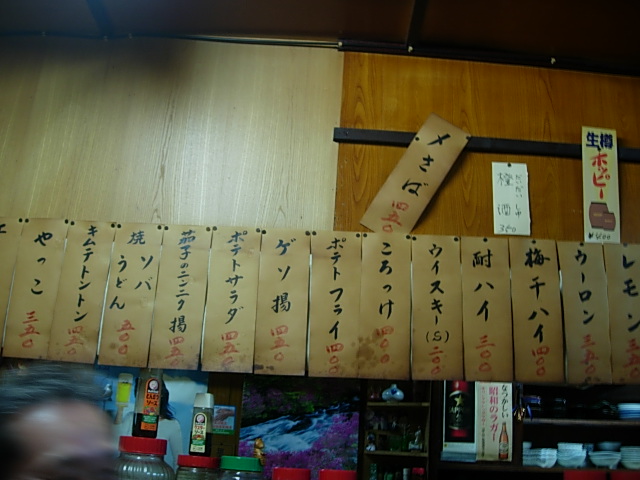 生樽
ホッピー
¥400
橙酒
360
〆さば
レモン
ウーロン
梅干ハイ
四〇〇
酎ハイ
三〇〇
ウイスキー(S)
二〇〇
ころっけ
四〇〇
ポテトフライ
四〇〇
ゲソ揚
四五〇
ポテトサラダ
四五〇
茄子のニンニク揚
四五〇
焼ソバ
うどん
五〇〇
キムテトントン
四五〇
やっこ
三五〇
なつかしい
昭和のラガー